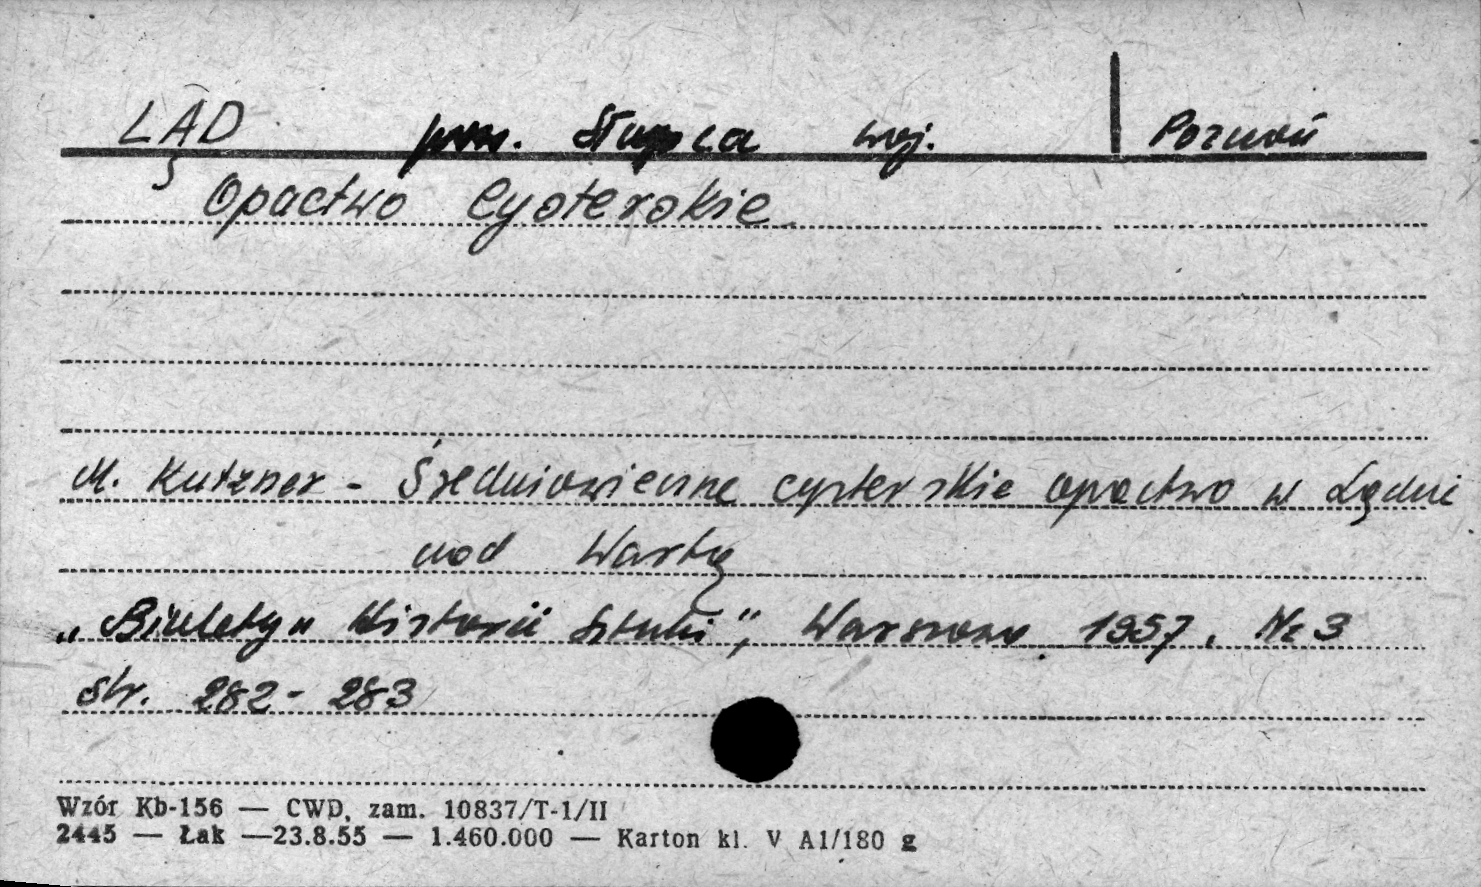 LĄD pow. Słupca woj. Poznań
Opactwo Cysterskie
M. Kutzner - Średniowieczne cysterskie opactwo w Lądzie
nad Wartą
„Biuletyn Historii Sztuki", Warszawa 1957, Nr 3
str. 282-283
Wzór Kb-156 — CWD, zam. 10837/T-1/II
2445 — Łak —23.8.55 — 1.460.000 — Karton kl. V A1/180 g